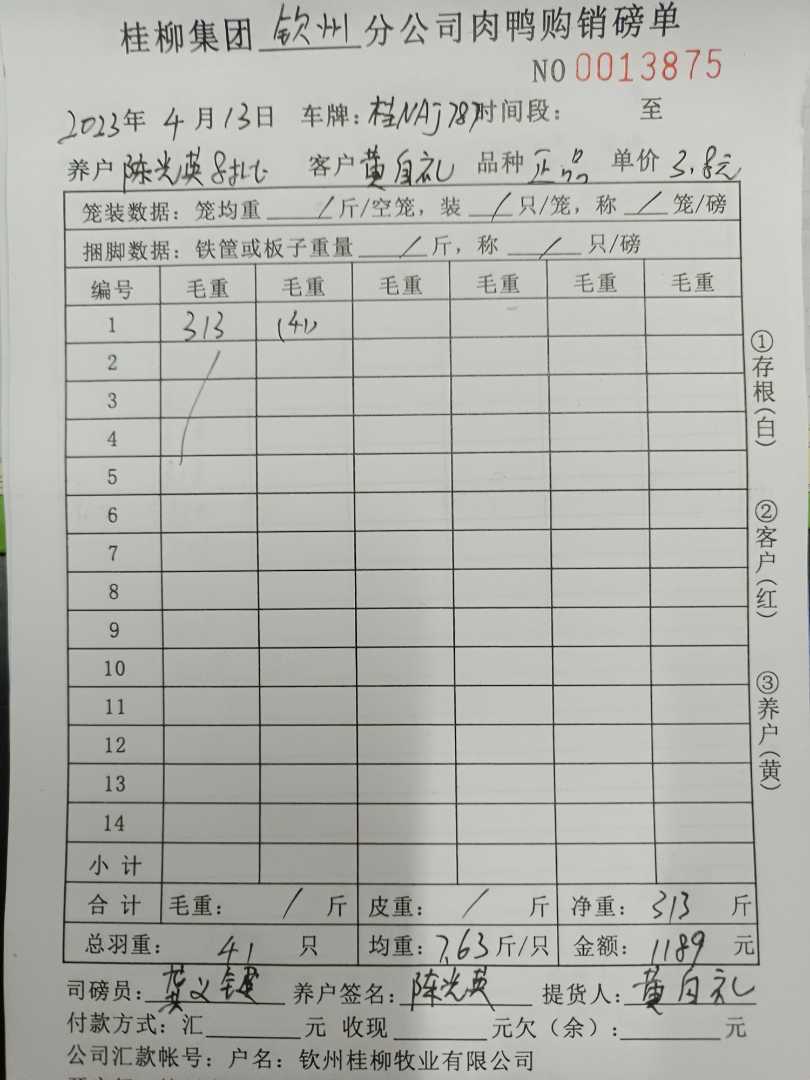 桂柳集团 钦州 分公司肉鸭购销磅单
NO 0013875
2023年 4月13日 车牌：桂NAJ787 时间段： 至
养户 陈光英 客户 黄自礼 品种 正品 单价 3.8元
笼装数据：笼均重 / 斤/空笼，装 / 只/笼，称 / 笼/磅
捆脚数据：铁筐或板子重量 / 斤，称 / 只/磅
编号 毛重 毛重 毛重 毛重 毛重 毛重
1 313 (41)
2
3
4
5
6
7
8
9
10
11
12
13
14
小计
合计 毛重： / 斤 皮重： / 斤 净重： 313 斤
总羽重： 41 只 均重：7.63斤/只 金额： 1189 元
司磅员： 养户签名：陈光英 提货人：黄自礼
付款方式：汇 元 收现 元欠（余）： 元
公司汇款帐号：户名：钦州桂柳牧业有限公司
①存根(白)
②客户(红)
③养户(黄)